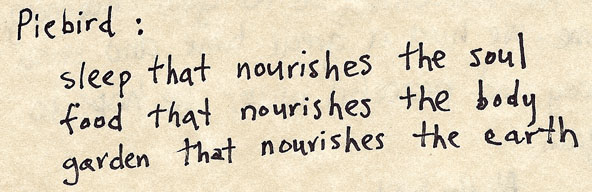 Piebird :
sleep that nourishes the soul
food that nourishes the body
garden that nourishes the earth